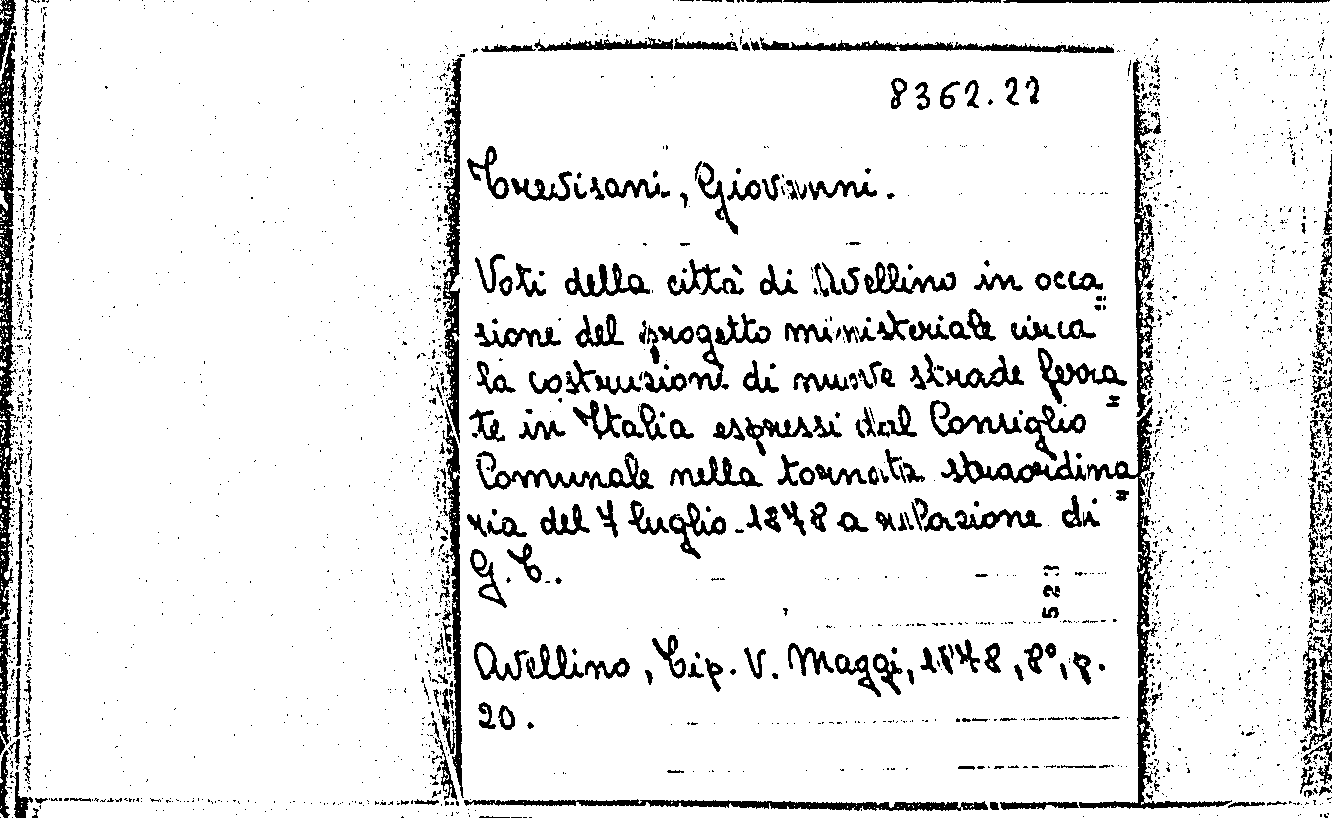 8362.22
Trevisani, Giovanni.
Voti della città di Avellino in occa=
sione del progetto ministeriale circa
la costruzione di nuove strade ferra=
te in Italia espressi dal Consiglio
Comunale nella tornata straordina=
ria del 7 luglio 1878 a relazione di
G. T.
521
Avellino, Tip. V. Maggi, 1878, 8°, p.
20.